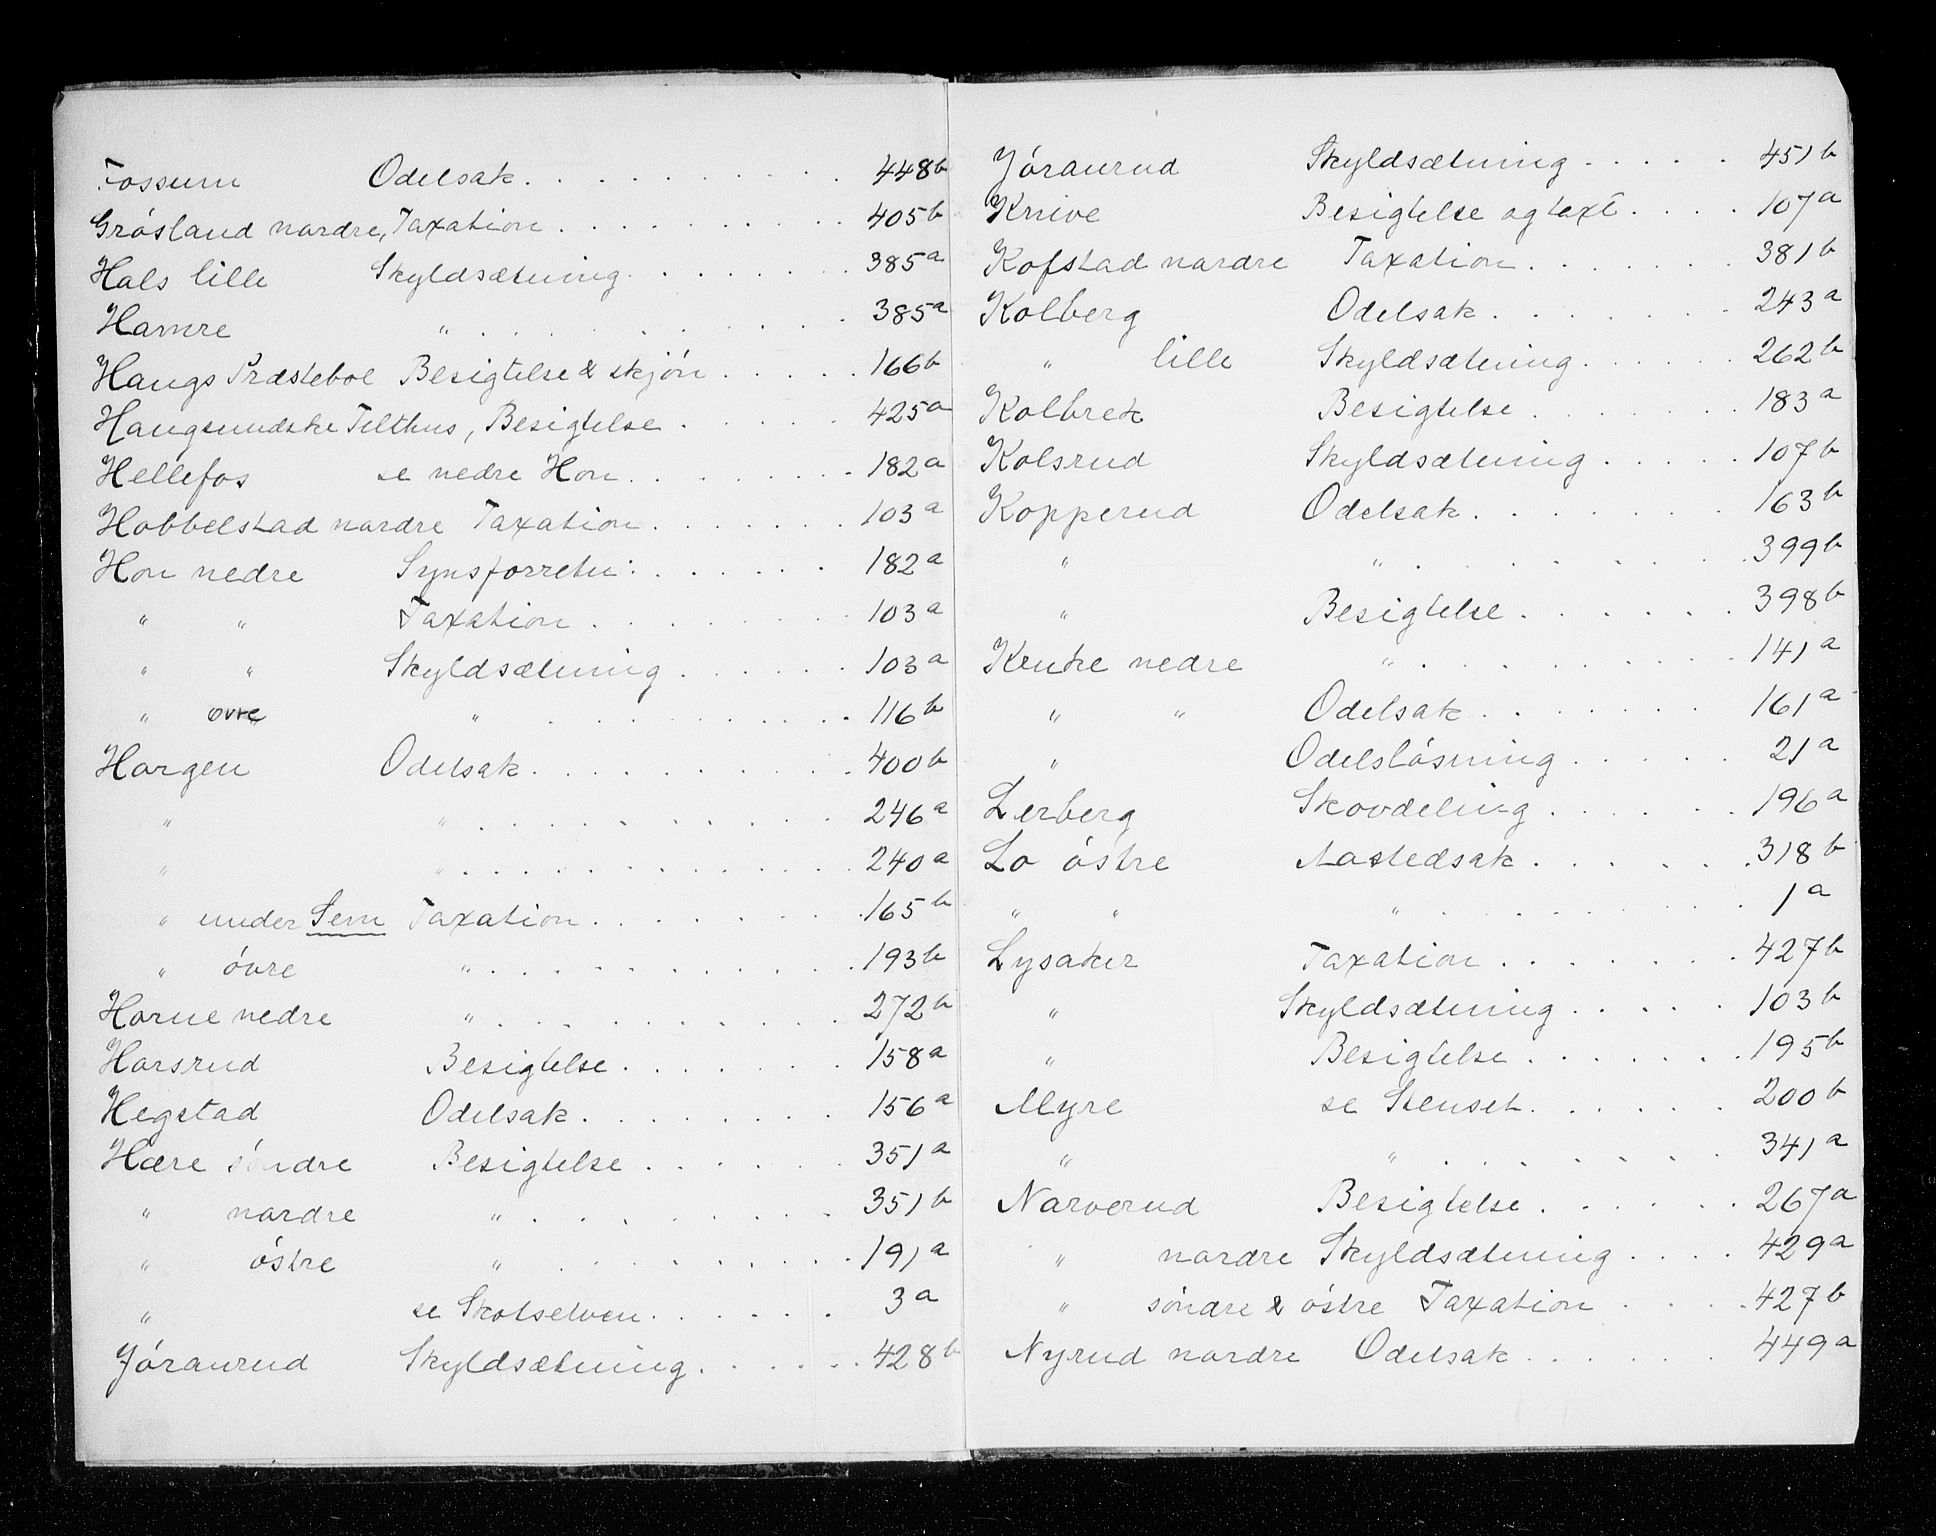 Fossum Odelsak. . . . . . . . . . . 448b
Grósland nordre, Taxation . . . . . . . . . 405b
Hals lille Skyldsætning. . . . . . . 385a
Hamre " . . . . . . . . . . 385a
Haugs Præsteboe Besigtelse & skjón . . . . . 166b
Haugsundske Telthus, Besigtelse . . . . . 425a
Hellefos se nedre Hon. . . . . . . 182a
Hobbelstad nordre Taxation . . . . . . 103a
Hon nedre Synsforretn: . . . . . . 182a
" " Taxation . . . . . . . 103a
" " Skyldsætning . . . . . . 103a
" ovre " . . . . . . . . 116b
Horgen Odelsak. . . . . . . . . . 400b
" " . . . . . . . . . . . 246a
" " . . . . . . . . . . . 240a
" under Sem Taxation . . . . . . . 165b
" óvre " . . . . . . . . . . 193b
Horne nedre " . . . . . . . . . 272b
Horsrud Besigtelse . . . . . . . 158a
Hegstad Odelsak. . . . . . . . 156a
Hære söndre Besigtelse . . . . . . 351a
" nordre " . . . . . . . . 351b
" óstre " . . . . . . . . 191a
" se Skotselven. . . . . . . 3a
Jóranrud Skyldsætning. . . . . . 428b
Jóranrud Skyldsætning . . . . . 451b
Knive Besigtelse og taxt. . . . . 107a
Kofstad nordre Taxation. . . . . . . 381b
Kolberg Odelsak. . . . . . . . 243a
" lille Skyldsætning. . . . . . 262b
Kolbrek Besigtelse. . . . . . . 183a
Kolsrud Skyldsætning . . . . . 107b
Kopperud Odelsak. . . . . . . 163b
" " . . . . . . . . . 399b
" Besigtelse. . . . . . . 398b
Kruke nedre " . . . . . . . . 141a
" " Odelsak. . . . . . . . 161a
" Odelslósning . . . . . 21a
Lerberg Skovdeling . . . . . . 196a
Lo óstre Aastedsak. . . . . . . 318b
" " " . . . . . . . . . 1a
Lysaker Taxation . . . . . . . 427b
" Skyldsætning . . . . . 103b
" Besigtelse . . . . . . . 195b
Myre se Stenset. . . . . . . 200b
" " . . . . . . . . 341a
Narverud Besigtelse. . . . . . . 267a
" nordre Skyldsætning . . . . 429a
" söndre & óstre Taxation . . . . 427b
Nyrud nordre Odelsak . . . . . . 449a